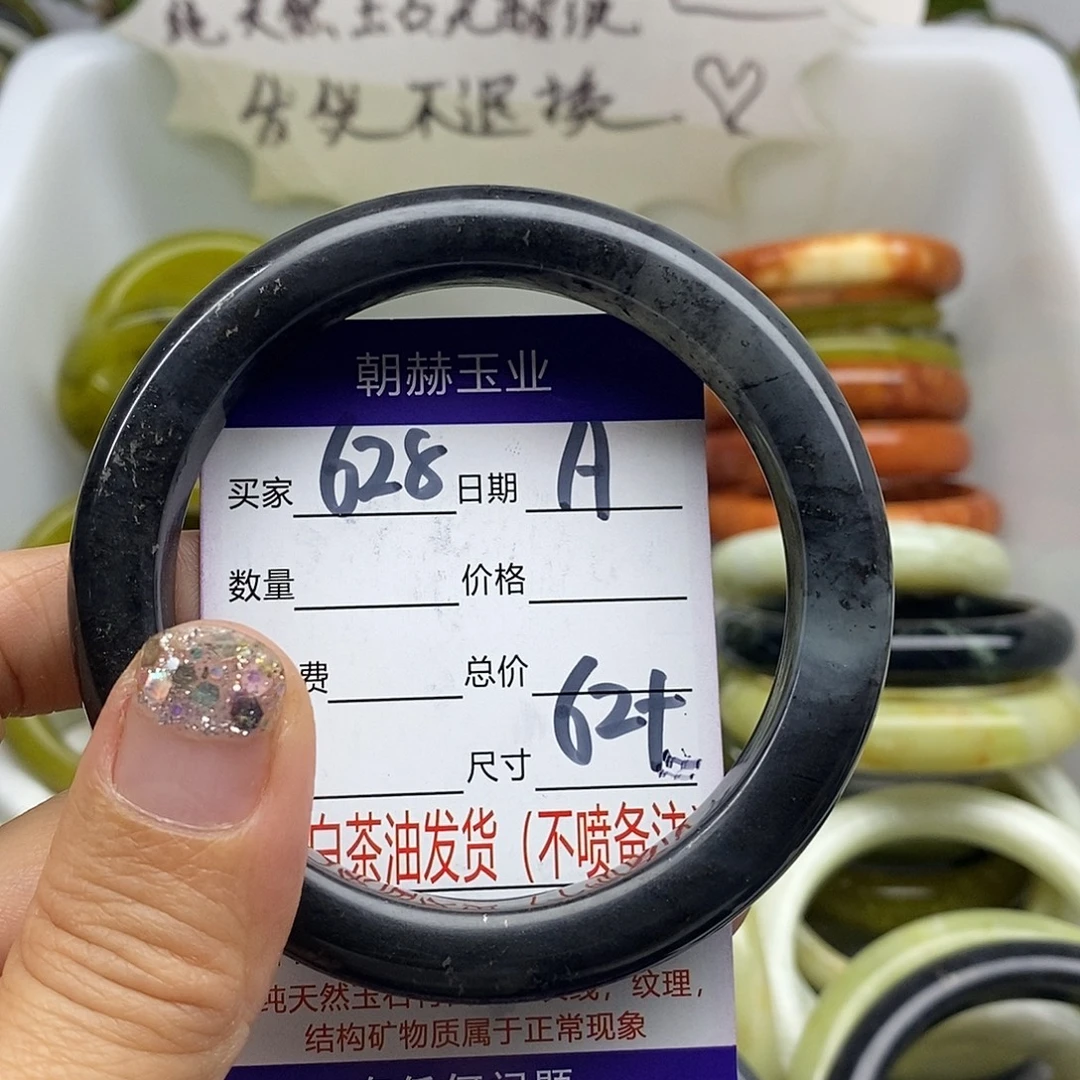 纯天然玉石无酸洗
售出不退换
朝赫玉业
买家 628 日期 A
数量 价格
费 总价
尺寸 62+
白茶油发货（不喷备注
纯天然玉石 纹理，
结构矿物质属于正常现象